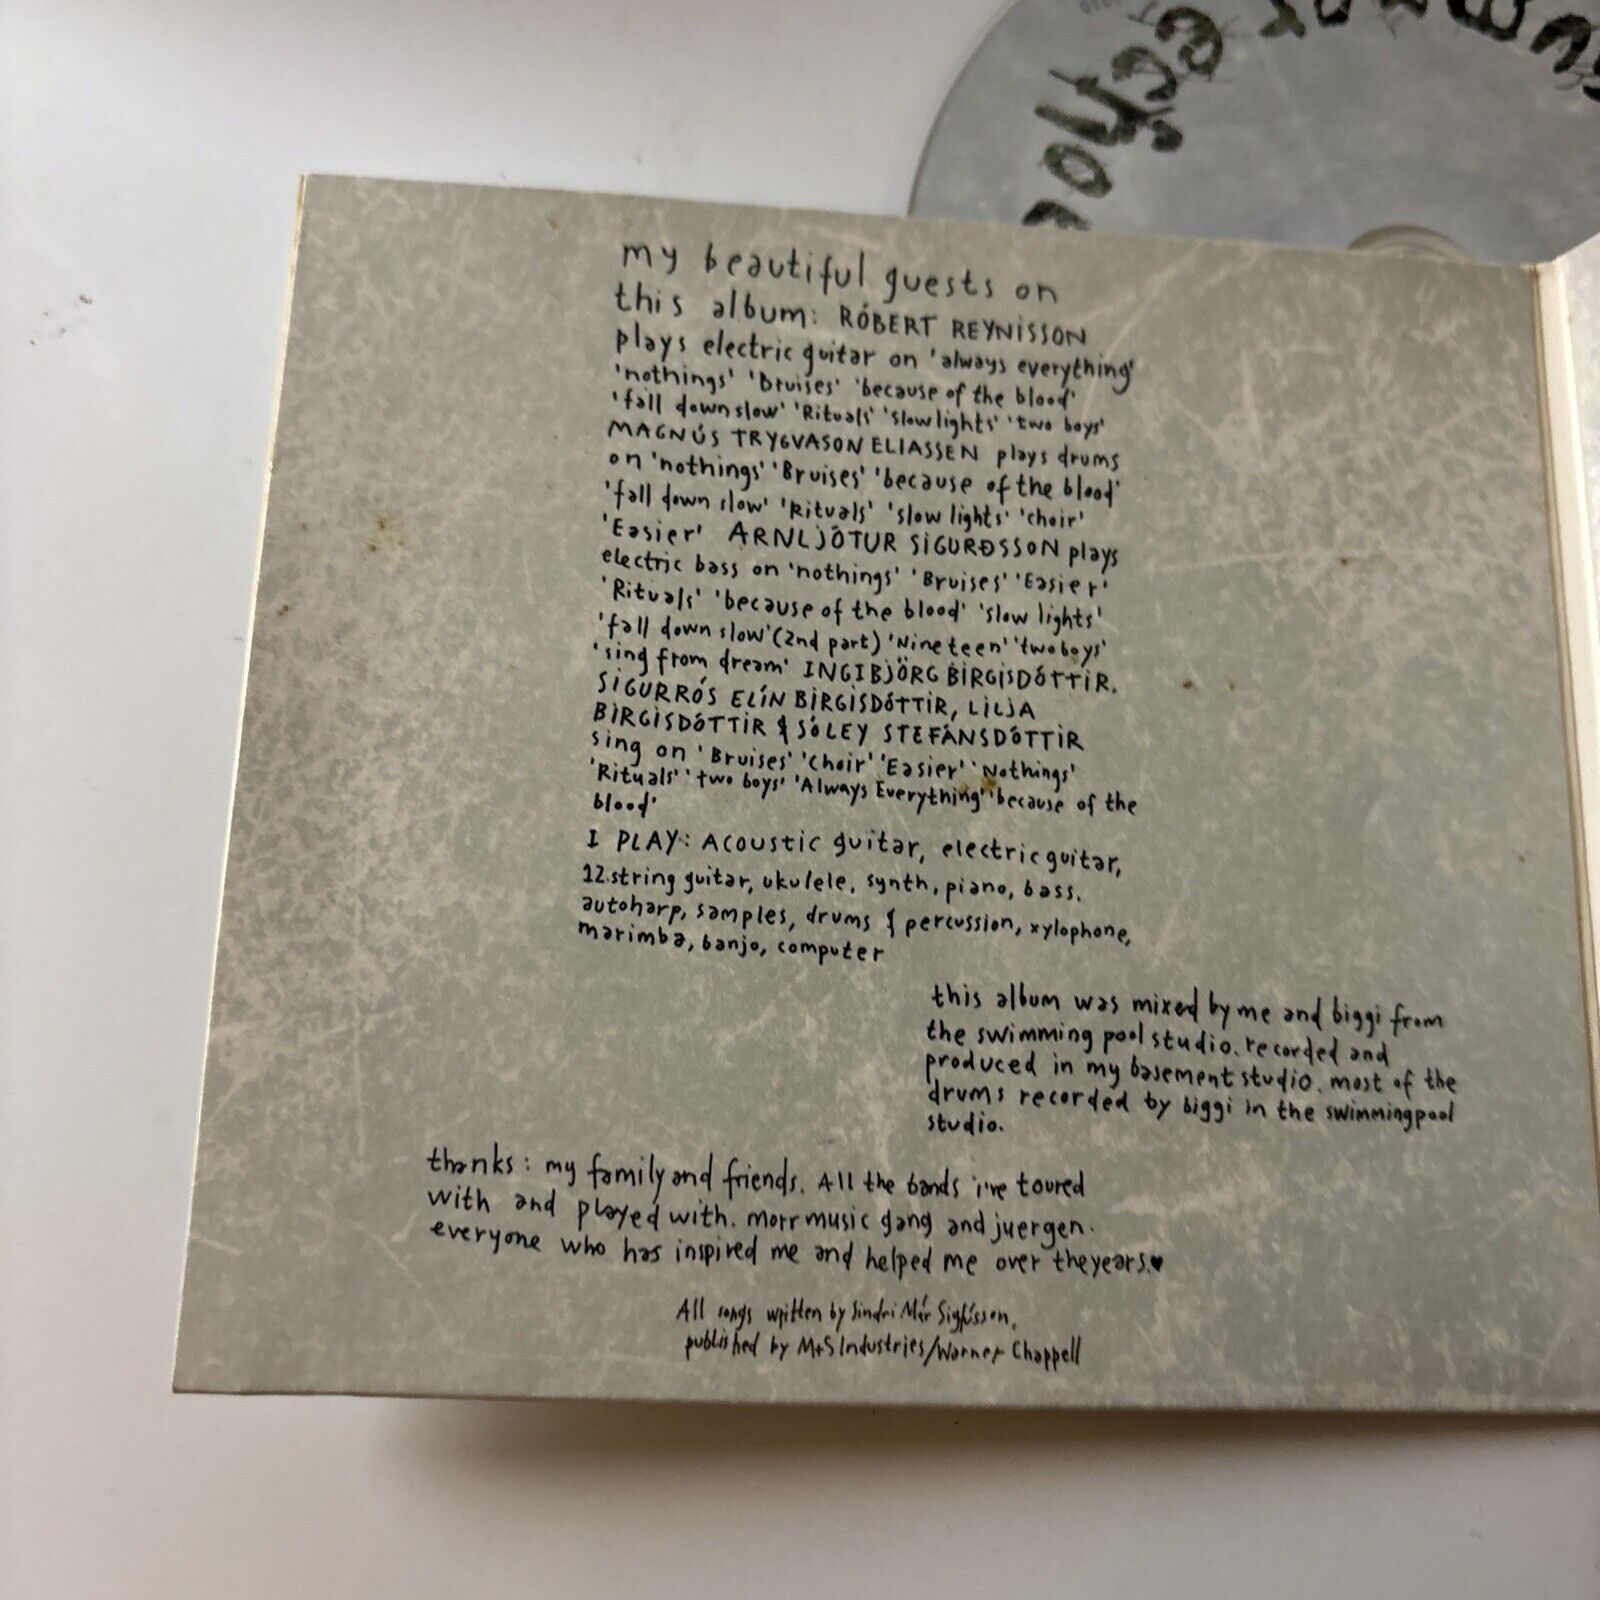 my beautiful guests on
this album: RÓBERT REYNISSON
plays electric guitar on 'always everything'
'nothings' 'Bruises' 'because of the blood'
'fall down slow' 'Rituals' 'slow lights' 'two boys'
MAGNÚS TRYGVASON ELIASSEN plays drums
on 'nothings' 'Bruises' 'because of the blood'
'fall down slow' 'Rituals' 'slow lights' 'choir'
'Easier' ARNLJÓTUR SIGURÐSSON plays
electric bass on 'nothings' 'Bruises' 'Easier'
'Rituals' 'because of the blood' 'slow lights'
'fall down slow' (2nd part) 'Nineteen' 'two boys'
'sing from dream' INGIBJÖRG BIRGISDÓTTIR.
SIGURRÓS ELÍN BIRGISDÓTTIR, LILJA
BIRGISDÓTTIR & SÓLEY STEFÁNSDÓTTIR
sing on 'Bruises' 'choir' 'Easier' 'Nothings'
'Rituals' 'two boys' 'Always Everything' 'because of the
blood'
I PLAY: Acoustic guitar, electric guitar,
12.string guitar, ukulele, synth, piano, bass.
autoharp, samples, drums & percussion, xylophone,
marimba, banjo, computer
this album was mixed by me and biggi from
the swimming pool studio. recorded and
produced in my basement studio. most of the
drums recorded by biggi in the swimmingpool
studio.
thanks: my family and friends. All the bands i've toured
with and played with. morr music gang and juergen.
everyone who has inspired me and helped me over the years.♥
All songs written by Sindri Már Sigfússon.
published by M+S Industries/Warner Chappell